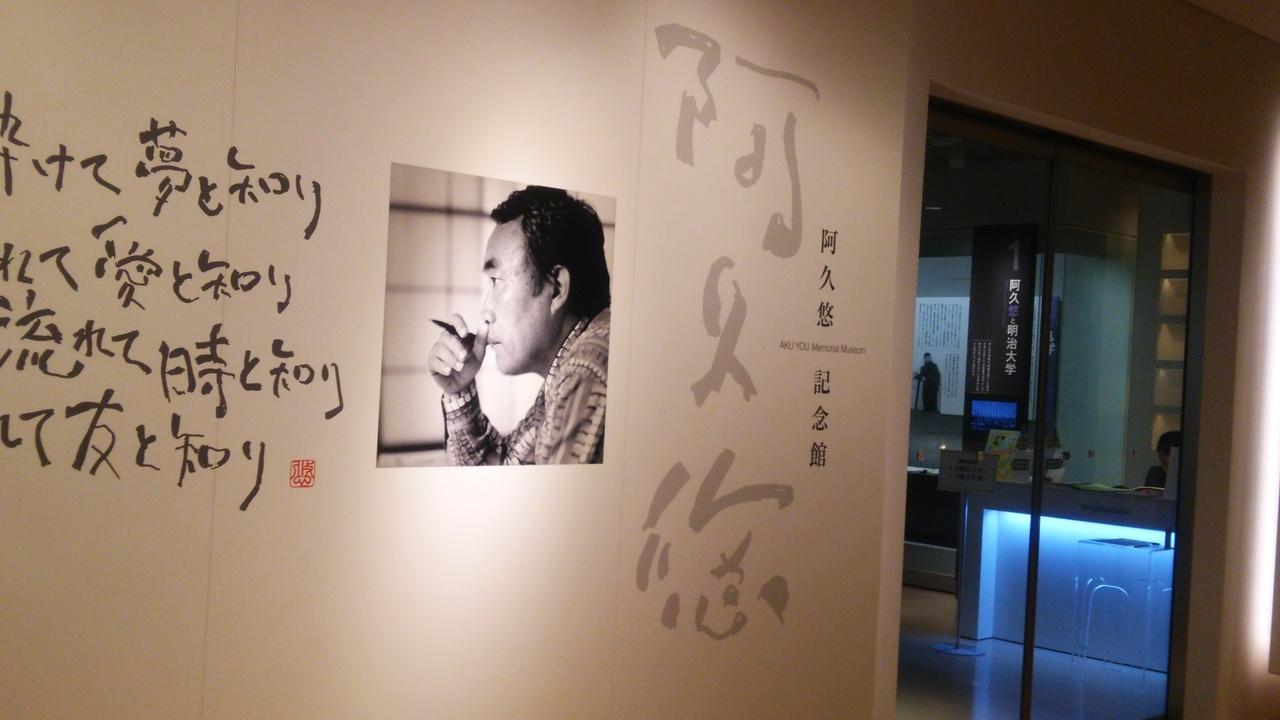 砕けて夢と知り
れて愛と知り
流れて時と知り
して友と知り
悠
阿久悠
阿久悠記念館
AKU YOU Memorial Museum
1
阿久悠と明治大学
INFORMATION